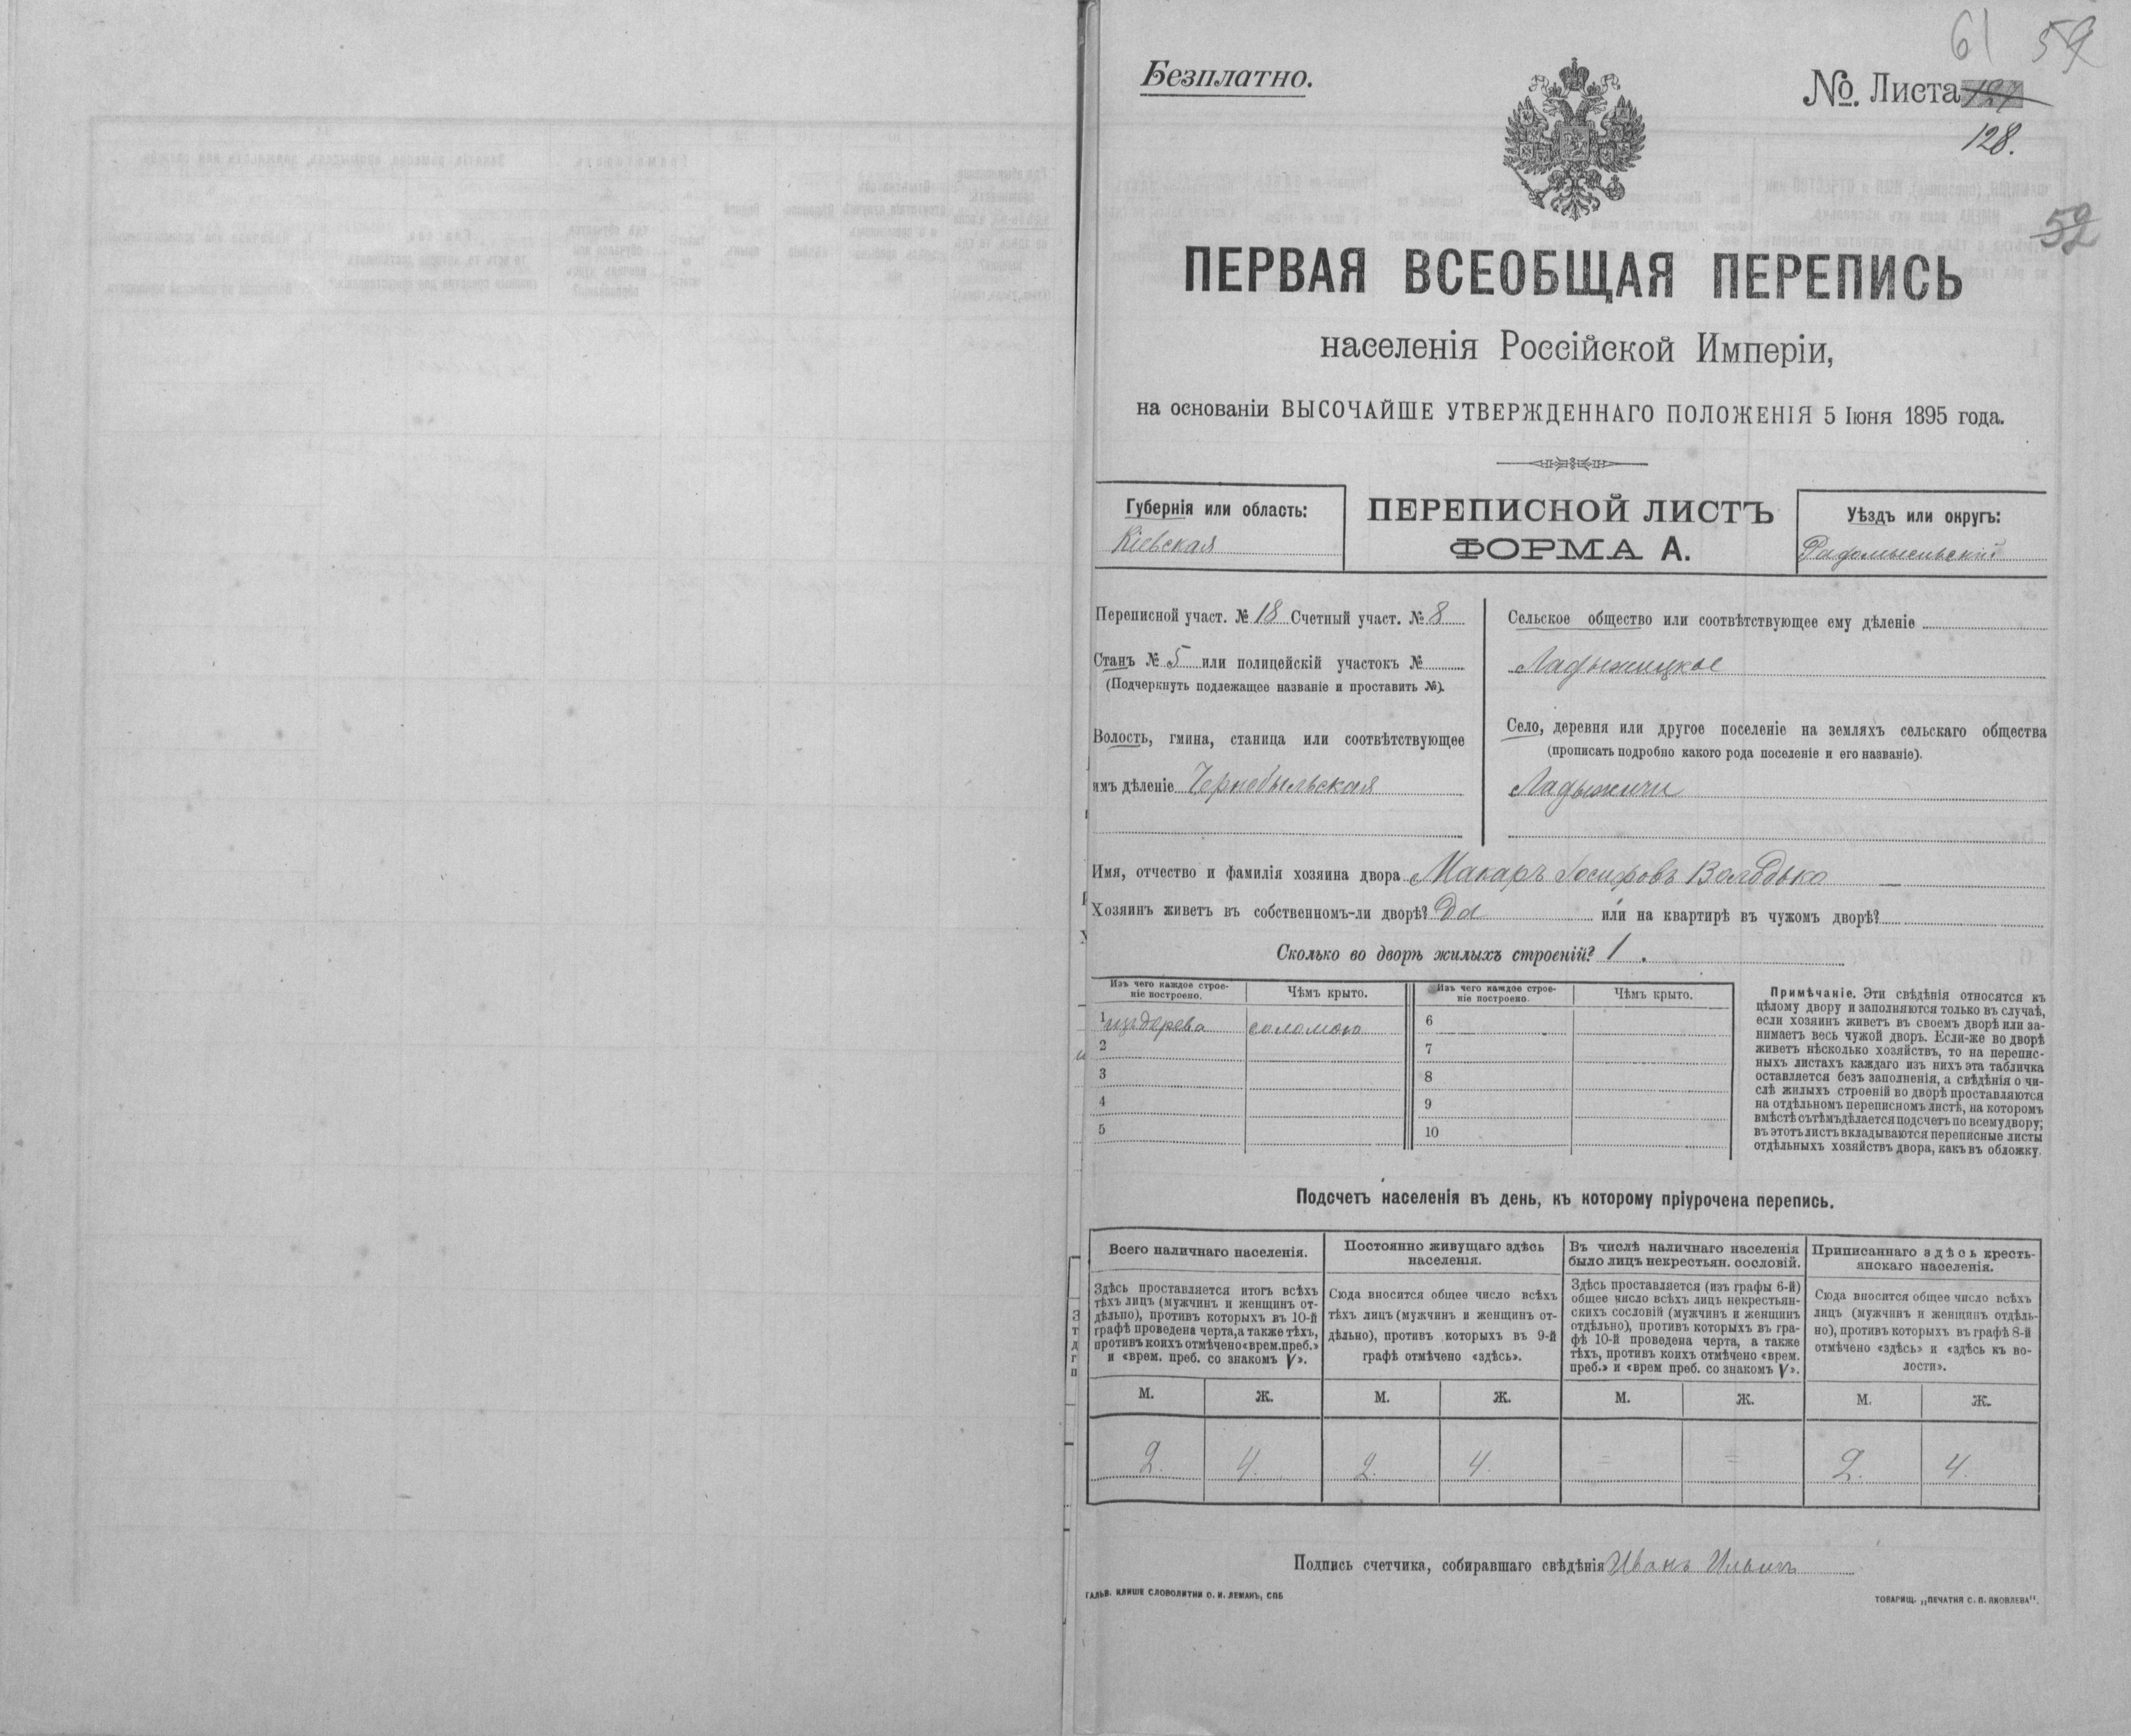 61 59
Безплатно.
№. Листа 127
128.
52
ПЕРВАЯ ВСЕОБЩАЯ ПЕРЕПИСЬ
населенія Россійской Имперіи,
на основаніи ВЫСОЧАЙШЕ УТВЕРЖДЕННАГО ПОЛОЖЕНІЯ 5 Іюня 1895 года.
Губернія или область:
Кіевская
ПЕРЕПИСНОЙ ЛИСТЪ
ФОРМА А.
Уѣздъ или округъ:
Радомысльскій
Переписной участ. № 18 Счетный участ. № 8
Станъ № 5 или полицейскій участокъ №
(Подчеркнуть подлежащее названіе и проставить №).
Волость, гмина, станица или соотвѣтствующее
имъ дѣленіе Чернобыльская
Сельское общество или соотвѣтствующее ему дѣленіе
Ладыжицкое
Село, деревня или другое поселеніе на земляхъ сельскаго общества
(прописать подробно какого рода поселеніе и его названіе).
Ладыжичи
Имя, отчество и фамилія хозяина двора Макаръ Іосифовъ
Хозяинъ живетъ въ собственномъ-ли дворѣ? Да или на квартирѣ въ чужомъ дворѣ?
Сколько во дворѣ жилыхъ строеній? 1.
Изъ чего каждое строе-
ніе построено.
Чѣмъ крыто.
Изъ чего каждое строе-
ніе построено.
Чѣмъ крыто.
1 изъ дерева соломою 6
2 7
3 8
4 9
5 10
Примѣчаніе. Эти свѣдѣнія относятся къ
цѣлому двору и заполняются только въ случаѣ,
если хозяинъ живетъ въ своемъ дворѣ или за-
нимаетъ весь чужой дворъ. Если-же во дворѣ
живетъ нѣсколько хозяйствъ, то на перепис-
ныхъ листахъ каждаго изъ нихъ эта табличка
оставляется безъ заполненія, а свѣдѣнія о чи-
слѣ жилыхъ строеній во дворѣ проставляются
на отдѣльномъ переписномъ листѣ, на которомъ
вмѣстѣ съ тѣмъ дѣлается подсчетъ по всему двору;
въ этотъ листъ вкладываются переписные листы
отдѣльныхъ хозяйствъ двора, какъ въ обложку.
Подсчетъ населенія въ день, къ которому пріурочена перепись.
Всего наличнаго населенія.
Здѣсь проставляется итогъ всѣхъ
тѣхъ лицъ (мужчинъ и женщинъ от-
дѣльно), противъ которыхъ въ 10-й
графѣ проведена черта, а также тѣхъ,
противъ коихъ отмѣчено «врем. преб.»
и «врем. преб. со знакомъ V».
Постоянно живущаго здѣсь
населенія.
Сюда вносится общее число всѣхъ
тѣхъ лицъ (мужчинъ и женщинъ от-
дѣльно), противъ которыхъ въ 9-й
графѣ отмѣчено «здѣсь».
Въ числѣ наличнаго населенія
было лицъ некрестьян. сословій.
Здѣсь проставляется (изъ графы 6-й)
общее число всѣхъ лицъ некрестьян-
скихъ сословій (мужчинъ и женщинъ
отдѣльно), противъ которыхъ въ гра-
фѣ 10-й проведена черта, а также
тѣхъ, противъ коихъ отмѣчено «врем.
преб.» и «врем преб. со знакомъ V».
Приписаннаго здѣсь кресть-
янскаго населенія.
Сюда вносится общее число всѣхъ
лицъ (мужчинъ и женщинъ отдѣль-
но), противъ которыхъ въ графѣ 8-й
отмѣчено «здѣсь» и «здѣсь къ во-
лости».
М. Ж. М. Ж. М. Ж. М. Ж.
2. 4. 2. 4. = = 2. 4.
Подпись счетчика, собиравшаго свѣдѣнія Иванъ
ГАЛЬВ. КЛИШЕ СЛОВОЛИТНИ О. И. ЛЕМАНЪ, СПБ
ТОВАРИЩ. „ПЕЧАТНЯ С. П. ЯКОВЛЕВА".